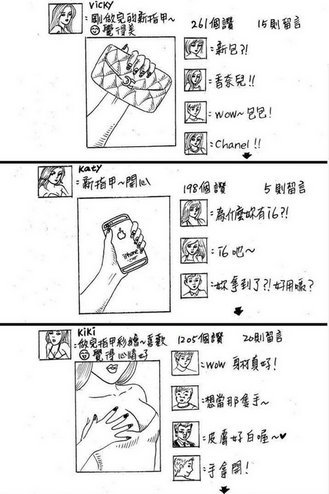 Vicky
：剛做完的新指甲~
覺得美
261個讚 15則留言
：新包?!
：香奈兒!!
：wow~包包!
：Chanel!!
Katy
：新指甲~開心
198個讚 5則留言
：為什麼妳有i6?!
：i6吧~
：妳拿到了?!好用嗎?
iPhone
KiKi
：做完指甲粉嫩~喜歡
覺得心情好
1205個讚 20則留言
：wow 身材真好!
：想當那隻手~
：皮膚好白喔~♥
：手拿開!